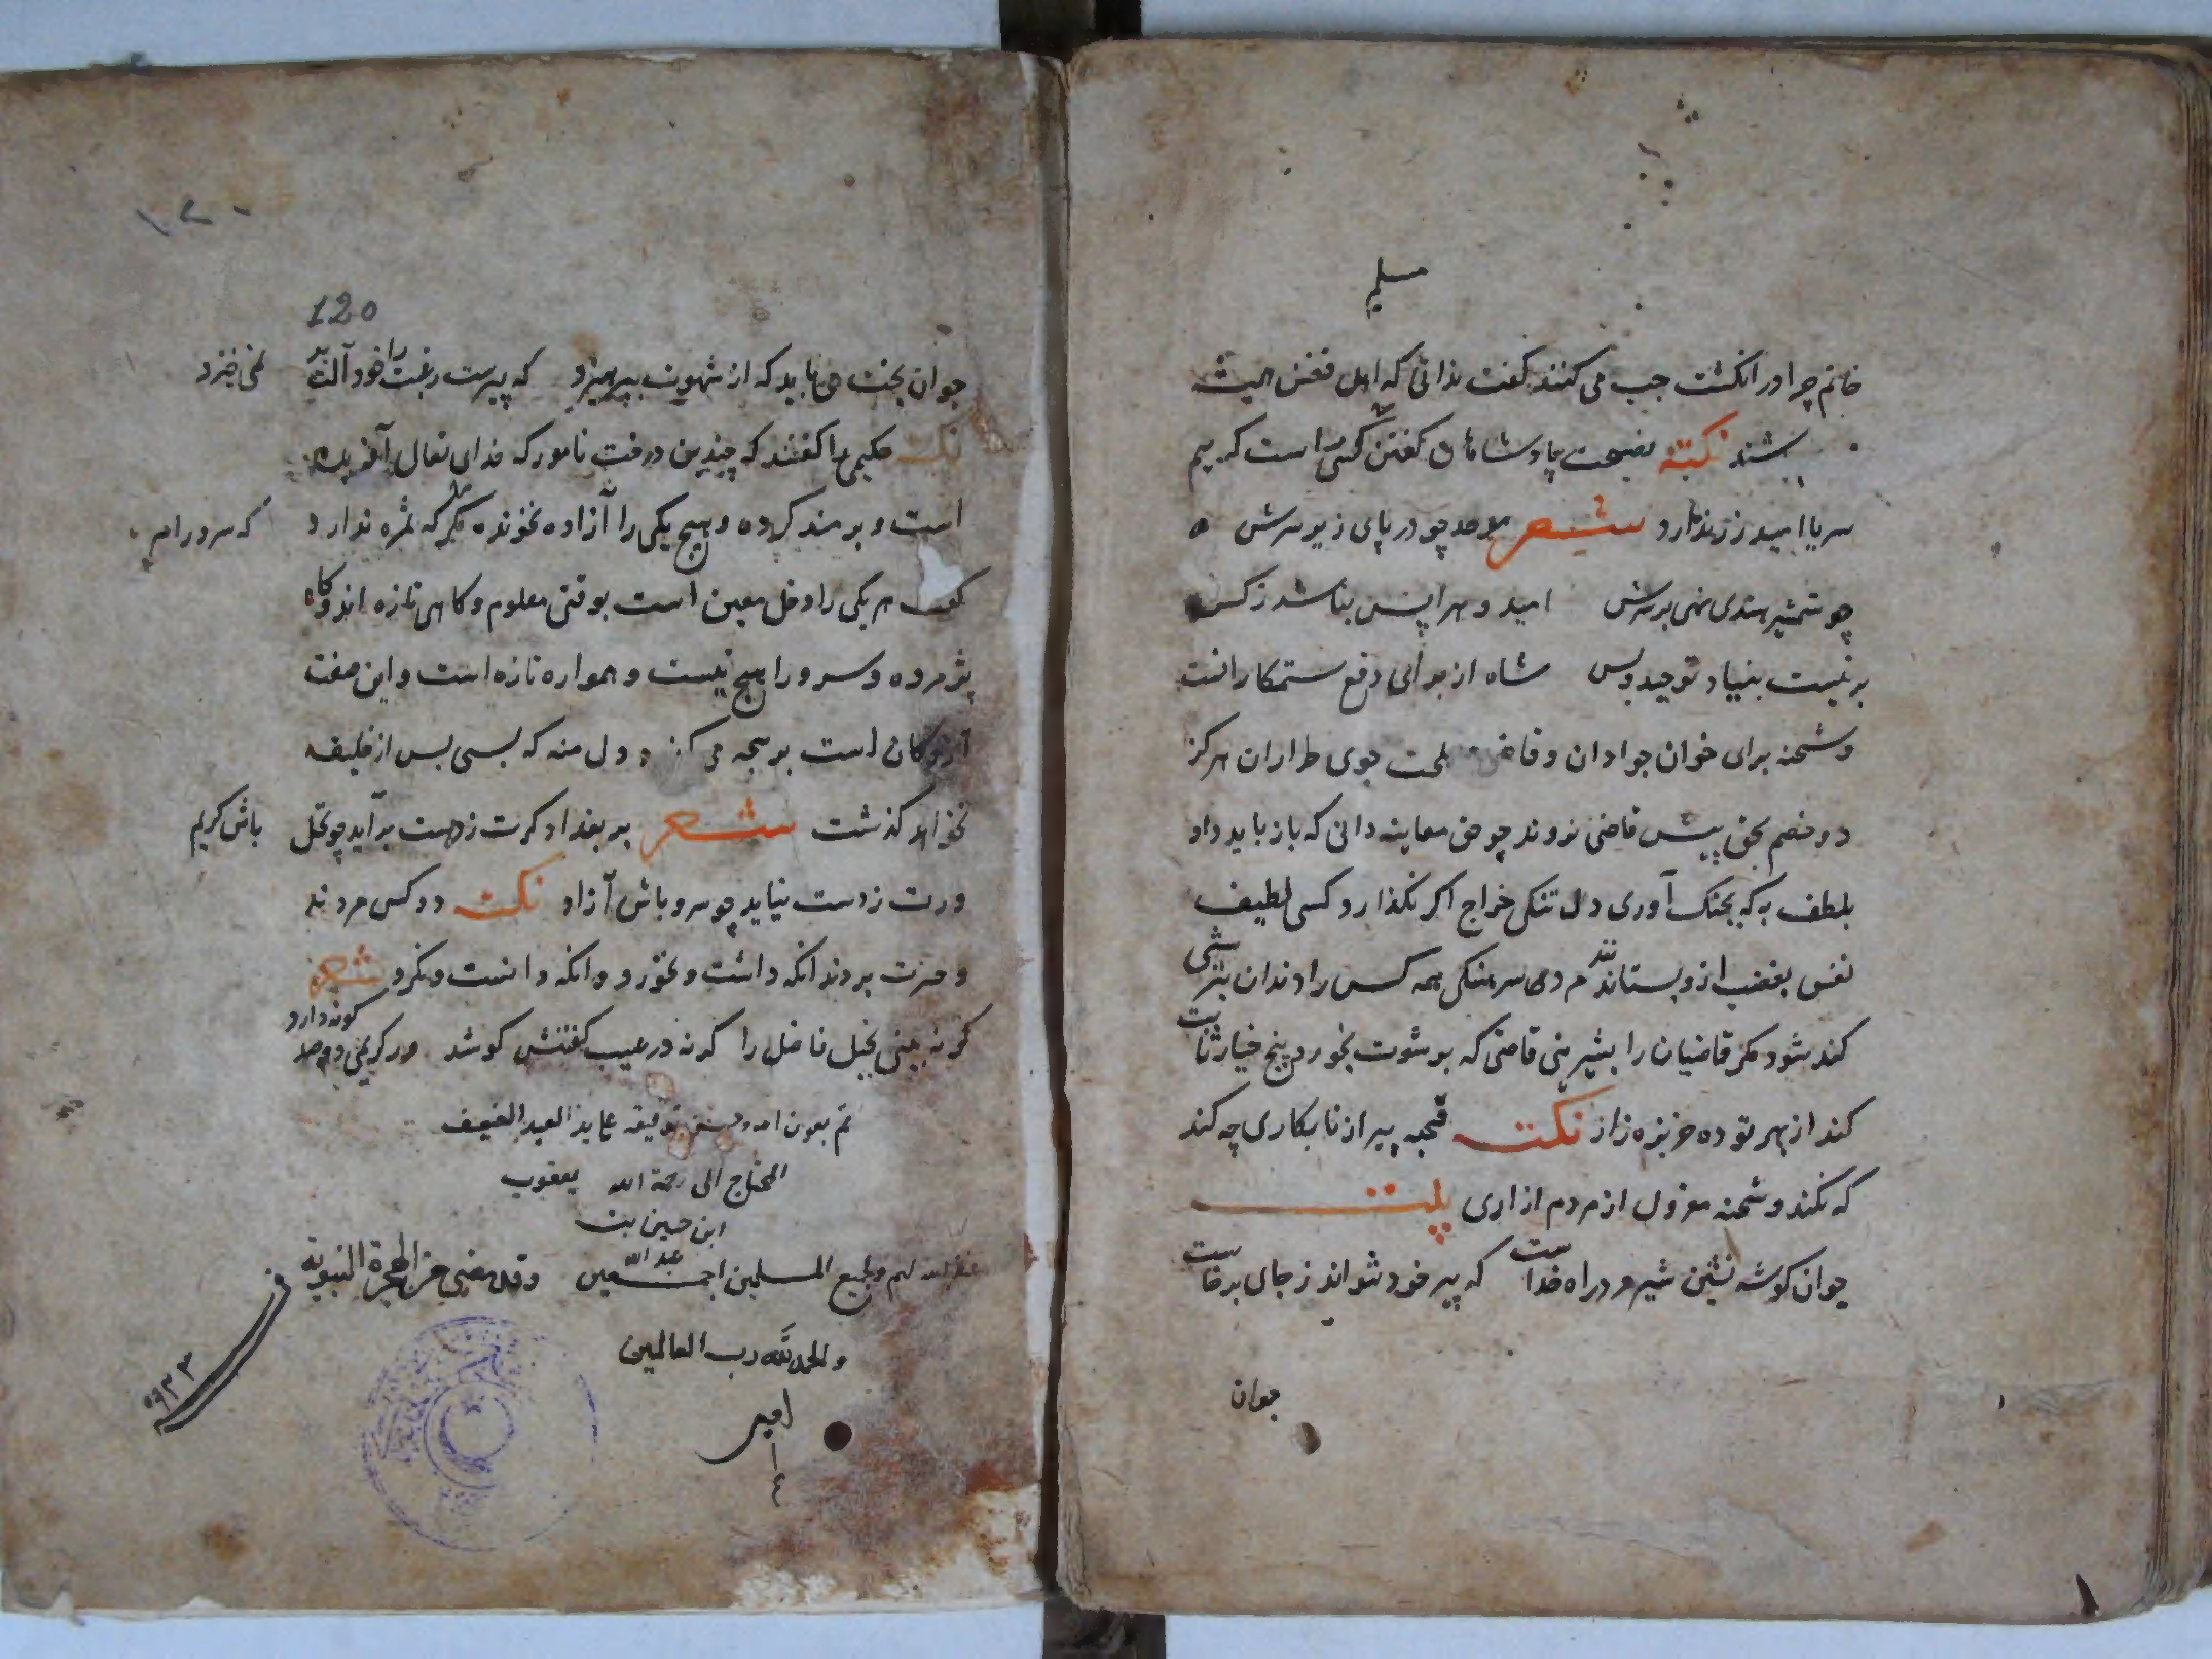 مسلم
خاتم چرا در انکشت چب می کنند کفت ندانی که اهل فضل همیشه
بشند نکته نصیحت پادشاهان کفتن کسی را است که بیم
سر یا امید زر ندارد شعر موحد چو در پای ریزی زرش
چو شمشیر هندی نهی برسرش امید و هراسش نباشد ز کس
برنیست بنیاد توحید و بس شاه از برای دفع ستمکارانست
و شحنه برای خوان جوادان و قاضی مصلحت جوی طراران هرکز
دو خصم بحق پیش قاضی نروند چو حق معاینه دانی که باز باید داد
بلطف به که بجنک آوری دل تنکی خراج اکر نکذارد کسی لطیف
نفس بغضب ازو بستانند مردی سرهنکی همه کس را دندان بترشی
کند شود مکر قاضیان را بشیرینی قاضی که برشوت بخورد پنج خیار ثابت
کند از بهر تو ده خربزه زار نکته قحبه پیر از نابکاری چه کند
که نکند و شحنه معزول از مردم ازاری بیت
جوان کوشه نشین شیر مرد راه خداست که پیر خود نتواند ز جای برخاست
جوان
۱۲۰
120
جوان سخت می باید که از شهوت بپرهیزد که پیر سست رغبت را خود آلت بر نمی خیزد
نکته حکیمی را کفتند که چندین درخت نامور که خدای تعالی آفریده
است و برمند کرده و هیچ یکی را آزاده نخوانده مکر که ثمره ندارد که سرو را
کفت هر یکی را دخل معین است بوقتی معلوم و کاهی تازه اند و کاه
پژمرده و سرو را هیچ نیست و همواره تازه است و این صفت
آزادکان است بر هجه می کذرد دل منه که بسی پس از خلیفه
بخواهد کذشت شعر بر بغداد کرت ز دست برآید چو نخل باش کریم
ورت ز دست نیاید چو سرو باش آزاد نکته دو کس مردند
و حسرت بردند انکه داشت و نخورد و انکه دانست و نکرد شعر
کس نه بینی بخیل فاضل را که نه در عیب کفتنش کوشد ور کریمی دو صد کونه دارد
تم بعون الله وحسن توفیقه علی ید العبد الضعیف
المحتاج الی رحمة الله یعقوب
ابن حسین بن
عبد الله
غفر الله لهم ولجمیع المسلمین اجمعین وقد مضی من الهجرة النبویة
فی
۹۳۳
والحمد لله رب العالمین